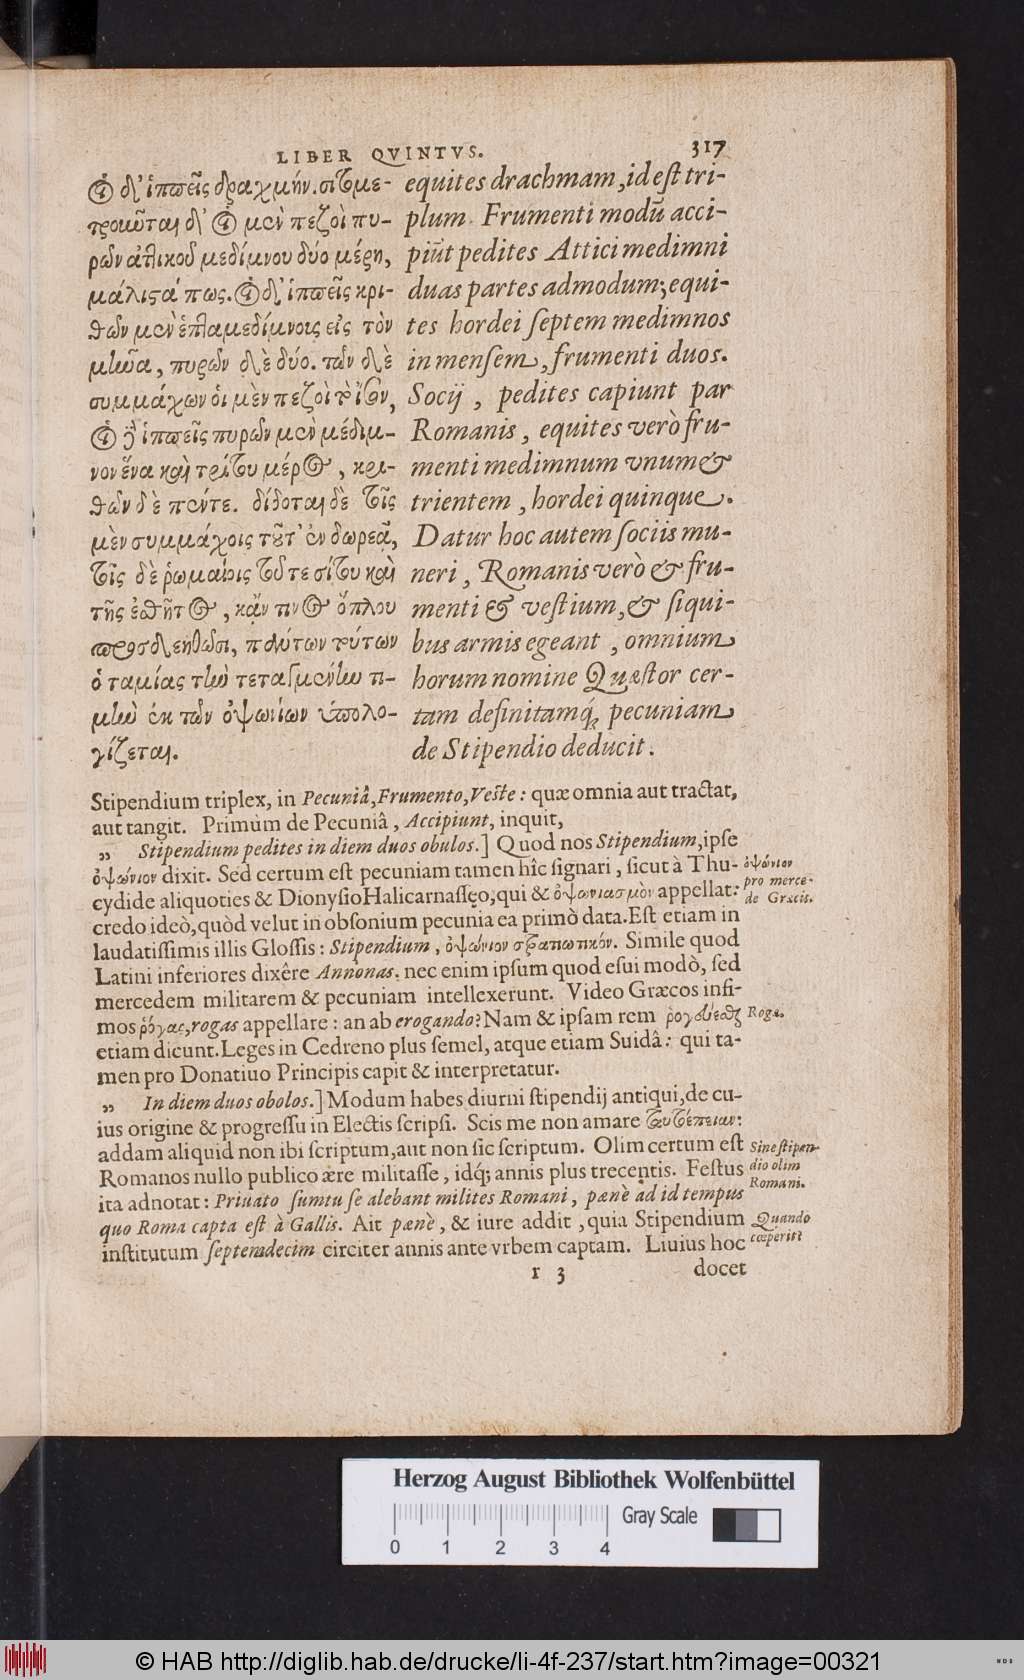 LIBER QVINTVS. 317
οἱ δ' ἱππεῖς δραχμήν. σιτομε-
τροῦνται δ' οἱ μὲν πεζοὶ πυ-
ρῶν ἀττικοῦ μεδίμνου δύο μέρη,
μάλιστά πως. οἱ δ' ἱππεῖς κρι-
θῶν μὲν ἑπταμεδίμνοις εἰς τὸν
μῆνα, πυρῶν δὲ δύο. τῶν δὲ
συμμάχων οἱ μὲν πεζοὶ τὸ ἴσον,
οἱ δ' ἱππεῖς πυρῶν μὲν μέδιμ-
νον ἕνα καὶ τρίτου μέρος, κρι-
θῶν δὲ πέντε. δίδοται δὲ τοῖς
μὲν συμμάχοις τοῦτ' ἐν δωρεᾷ,
τοῖς δὲ ῥωμαίοις τοῦ τε σίτου καὶ
τῆς ἐσθῆτος, κἄν τινος ὅπλου
προσδεηθῶσι, πάντων τούτων
ὁ ταμίας τὴν τεταγμένην τι-
μὴν ἐκ τῶν ὀψωνίων ὑπολο-
γίζεται.
equites drachmam, id est tri-
plum. Frumenti modū acci-
piūt pedites Attici medimni
duas partes admodum; equi-
tes hordei septem medimnos
in mensem, frumenti duos.
Socij, pedites capiunt par
Romanis, equites verò fru-
menti medimnum vnum &
trientem, hordei quinque.
Datur hoc autem sociis mu-
neri, Romanis verò & fru-
menti & vestium, & siqui-
bus armis egeant, omnium
horum nomine Quæstor cer-
tam definitamq́; pecuniam
de Stipendio deducit.
Stipendium triplex, in Pecuniâ, Frumento, Veste: quæ omnia aut tractat,
aut tangit. Primùm de Pecuniâ, Accipiunt, inquit,
„ Stipendium pedites in diem duos obulos.] Quod nos Stipendium, ipse
ὀψώνιον dixit. Sed certum est pecuniam tamen hîc signari, sicut à Thu-
cydide aliquoties & Dionysio Halicarnasseo, qui & ὀψωνιασμὸν appellat:
credo ideò, quòd velut in obsonium pecunia ea primò data. Est etiam in
laudatissimis illis Glossis: Stipendium, ὀψώνιον στρατιωτικόν. Simile quod
Latini inferiores dixêre Annonas. nec enim ipsum quod esui modò, sed
mercedem militarem & pecuniam intellexerunt. Video Græcos infi-
mos ῥόγας, rogas appellare: an ab erogando? Nam & ipsam rem ῥογεύεσθαι
etiam dicunt. Leges in Cedreno plus semel, atque etiam Suidâ: qui ta-
men pro Donatiuo Principis capit & interpretatur.
„ In diem duos obolos.] Modum habes diurni stipendij antiqui, de cu-
ius origine & progressu in Electis scripsi. Scis me non amare ταυτέπειαν:
addam aliquid non ibi scriptum, aut non sic scriptum. Olim certum est
Romanos nullo publico ære militasse, idq́; annis plus trecentis. Festus
ita adnotat: Priuato sumtu se alebant milites Romani, pænè ad id tempus
quo Roma capta est à Gallis. Ait pænè, & iure addit, quia Stipendium
institutum septemdecim circiter annis ante vrbem captam. Liuius hoc
r 3 docet
ὀψώνιον
pro merce-
de Græcis.
Rogæ.
Sine stipen-
dio olim
Romani.
Quando
cœperit?
Herzog August Bibliothek Wolfenbüttel
0 1 2 3 4
Gray Scale
© HAB http://diglib.hab.de/drucke/li-4f-237/start.htm?image=00321